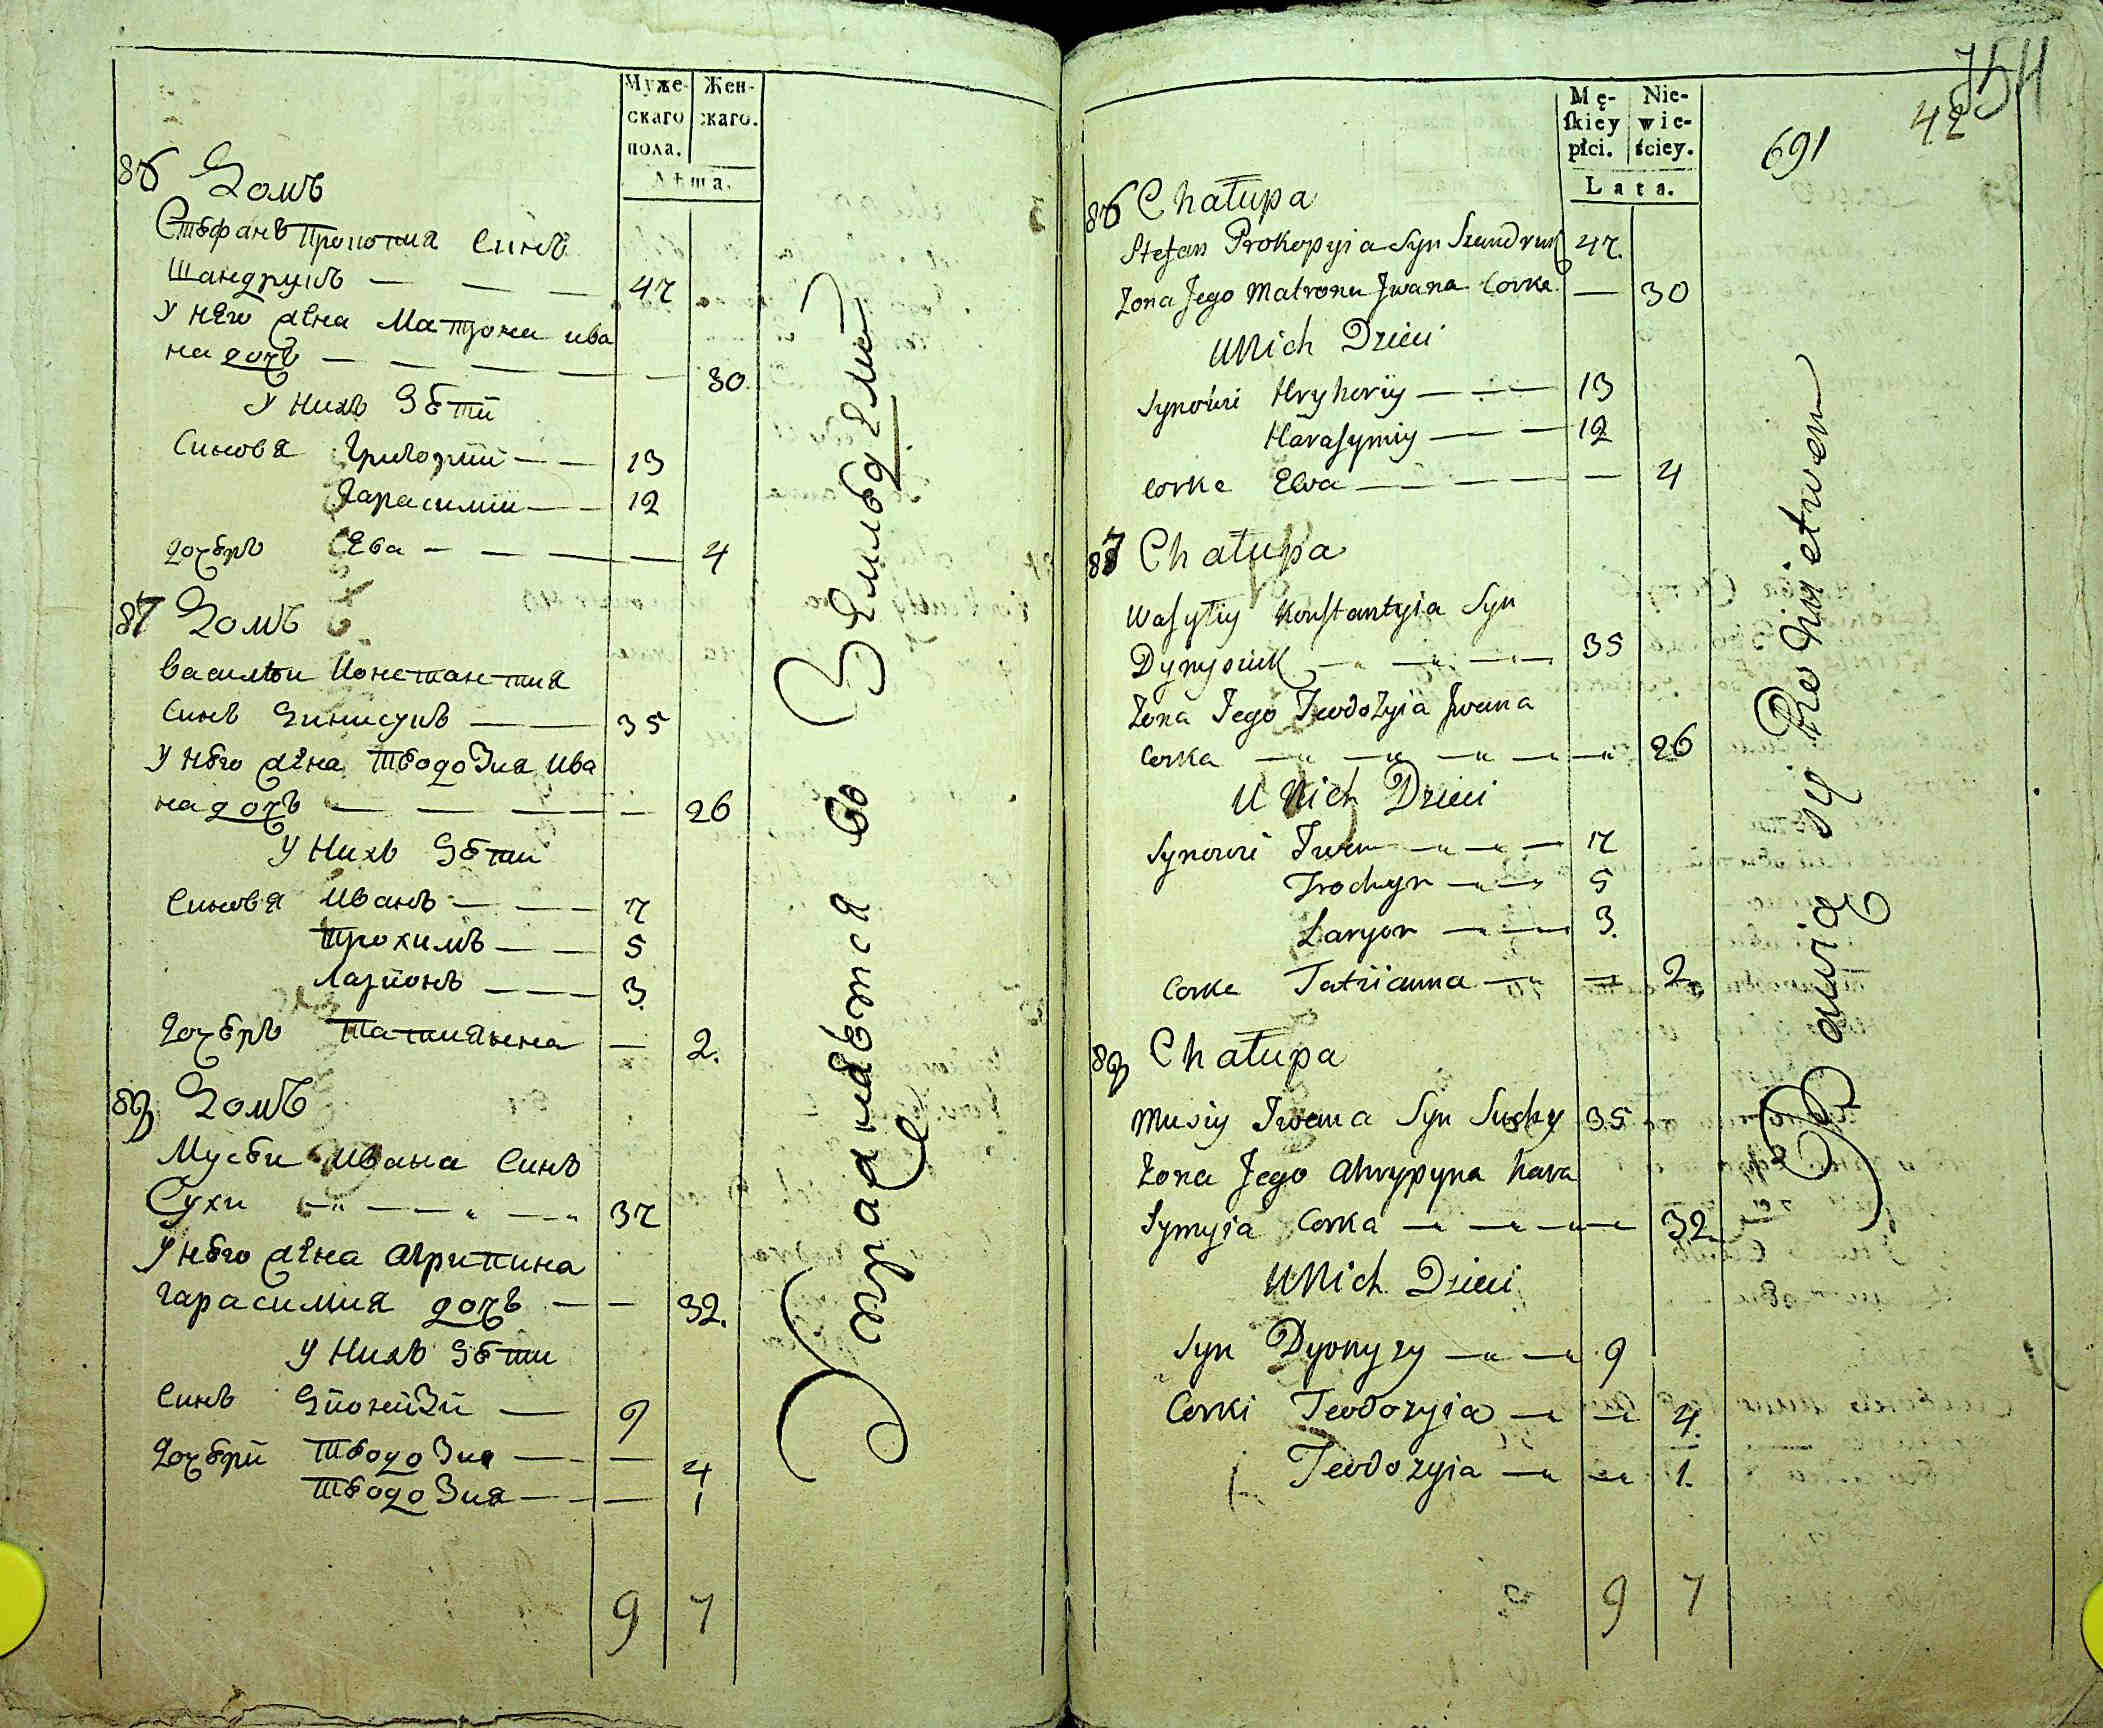 Муже-
скаго
пола.
Жен-
скаго.
Лѣта.
86 Домъ
Стефанъ Прокопия Синъ
Шандрукъ — — — 47
У него жена Матрона ива
на дочъ — — — — — — 30.
У нихъ Дети
Синовя Григорий — — 13
Гарасимий — — 12
Дочеръ Ева — — — — 4
87 Домъ
Василѣи Константия
Синъ Динисукъ — — 35
У него жена Теодозия Ива
на дочъ — — — — — 26
У нихъ Дети
Синовя Иванъ — — — 7
Трохимъ — — 5
Ларионъ — — — 3.
Дочеръ Татиянна — 2.
88 Домъ
Мусеи Ивана Синъ
Сухи — — — — 37
У него жена Агрипина
Гарасимия дочъ — — 32.
У нихъ Дети
Синъ Дионизи — 9
Дочери Теодозия — — 4
Теодозия — — — 1
9 7
Управляется въ Земледелии
754
42
691
Mę-
ſkiey
płci.
Nie-
wie-
ściey.
Lata.
86 Chałupa
Stefan Prokopyia Syn Szandruk 47.
Zona Jego Matrona Jwana Corka — 30
U Nich Dzieci
Synowi Hryhoriy — — — 13
Harasymiy — — 12
Corka Ewa — — — — — 4
87 Chałupa
Wasyliy Konstantyia Syn
Dynysiuk — — — 35
Zona Jego Teodozyia Jwana
Corka — — — — — — 26
U Nich Dzieci
Synowi Iwan — — — 7
Trochym — — 5
Laryon — — 3.
Corka Tatiianna — — 2.
88 Chałupa
Musiy Iwana Syn Suchy 35
Zona Jego Ahrypyna hara
Symyia Corka — — — — 32.
U Nich Dzieci
Syn Dyonyzy — — 9
Corki Teodozyia — — 4.
Teodozyia — — 1.
9 7
Bawią się Rolnictwem